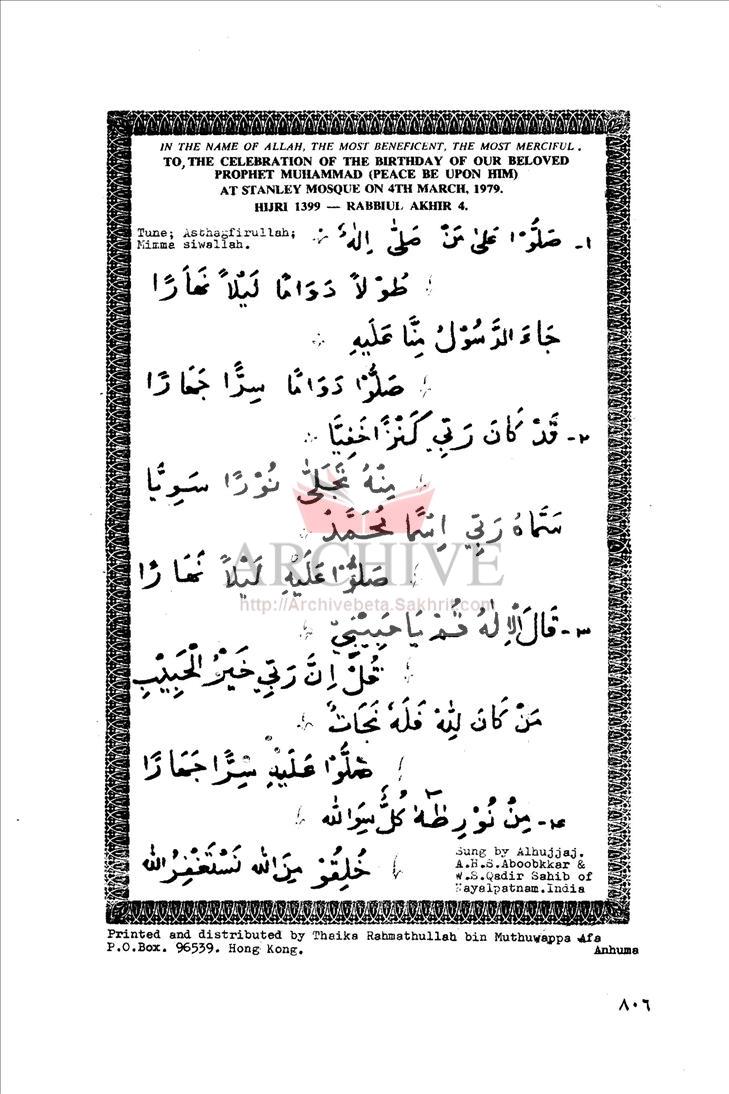 IN THE NAME OF ALLAH, THE MOST BENEFICENT, THE MOST MERCIFUL.
TO, THE CELEBRATION OF THE BIRTHDAY OF OUR BELOVED
PROPHET MUHAMMAD (PEACE BE UPON HIM)
AT STANLEY MOSQUE ON 4TH MARCH, 1979.
HIJRI 1399 — RABBIUL AKHIR 4.
Tune; Asthagfirullah;
Mimma siwallah.
١- صَلُّوْا عَلىٰ مَنْ صَلىّٰ اِلٰهُ
طُوْلاً دَوَامًا لَيْلاً نَهَارًا
جَاءَ الرَّسُوْلُ مِنَّا عَلَيْهِ
صَلُّوْا دَوَامًا سِرًّا جَهَارًا
٢- قَدْ كَانَ رَبِّي كَنْزًا خَفِيًّا
مِنْهُ تَجَلىّٰ نُوْرًا سَوِيًّا
سَمَّاهُ رَبِّي اِسْمًا مُحَمَّدْ
ARCHIVE
صَلُّوْا عَلَيْهِ لَيْلاً نَهَارًا
http://Archivebeta.Sakhrit.com
٣- قَالَ اْلاِلٰهُ قُمْ يَا حَبِيْبِيْ
قُلْ اِنَّ رَبِّي خَيْرُ الْحَبِيْبِ
مَنْ كَانَ لِلّٰهِ فَلَهُ نَجَاتٌ
صَلُّوْا عَلَيْهِ سِرًّا جَهَارًا
٤- مِنْ نُوْرِ طٰهٰ كُلُّ سِوَالله
خُلِقُوْ مِنَ الله نَسْتَغْفِرُ الله
Sung by Alhujjaj.
A.H.S.Aboobkkar &
W.S.Qadir Sahib of
Kayalpatnam.India
Printed and distributed by Thaika Rahmathullah bin Muthuwappa Afa
P.O.Box. 96539. Hong Kong. Anhuma
٨٠٦